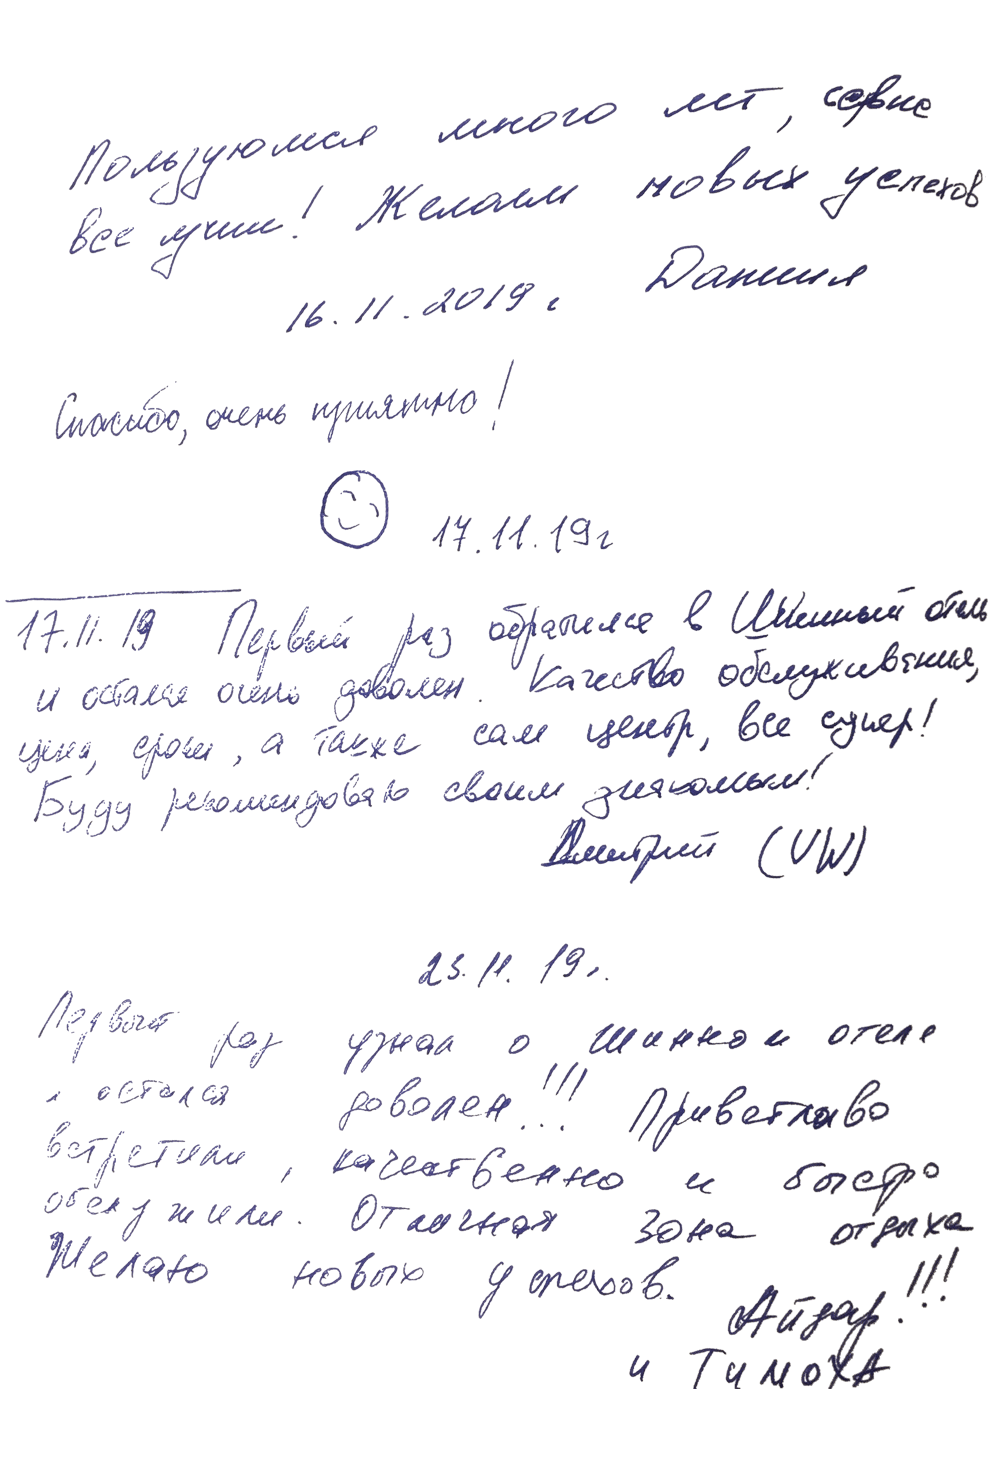 Пользуюмся много лет, сервис
все лучше! Желаем новых успехов
16.11.2019 г. Даниил
Спасибо, очень приятно!
17.11.19 г
17.11.19 Первый раз обратился в Шинный отель
и остался очень доволен. Качество обслуживания,
цена, сроки, а также сам центр, все супер!
Буду рекомендоваю своим знакомым!
Дмитрий (VW)
23.11.19 г.
Первый раз узнал о Шинном отеле
и остался доволен!!! Приветливо
встретили, качественно и быстро
обслужили. Отличная зона отдыха
Желаю новых успехов.
Айдар!!!
и Тимоха